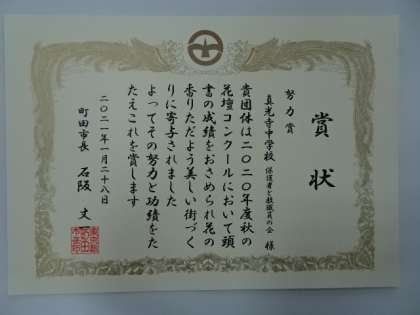 賞状
努力賞
真光寺中学校 保護者と教職員の会 様
貴団体は二〇二〇年度秋の
花壇コンクールにおいて頭
書の成績をおさめられ花の
香りただよう美しい街づく
りに寄与されました
よってその努力と功績をた
たえこれを賞します
二〇二一年一月二十八日
町田市長 石阪 丈